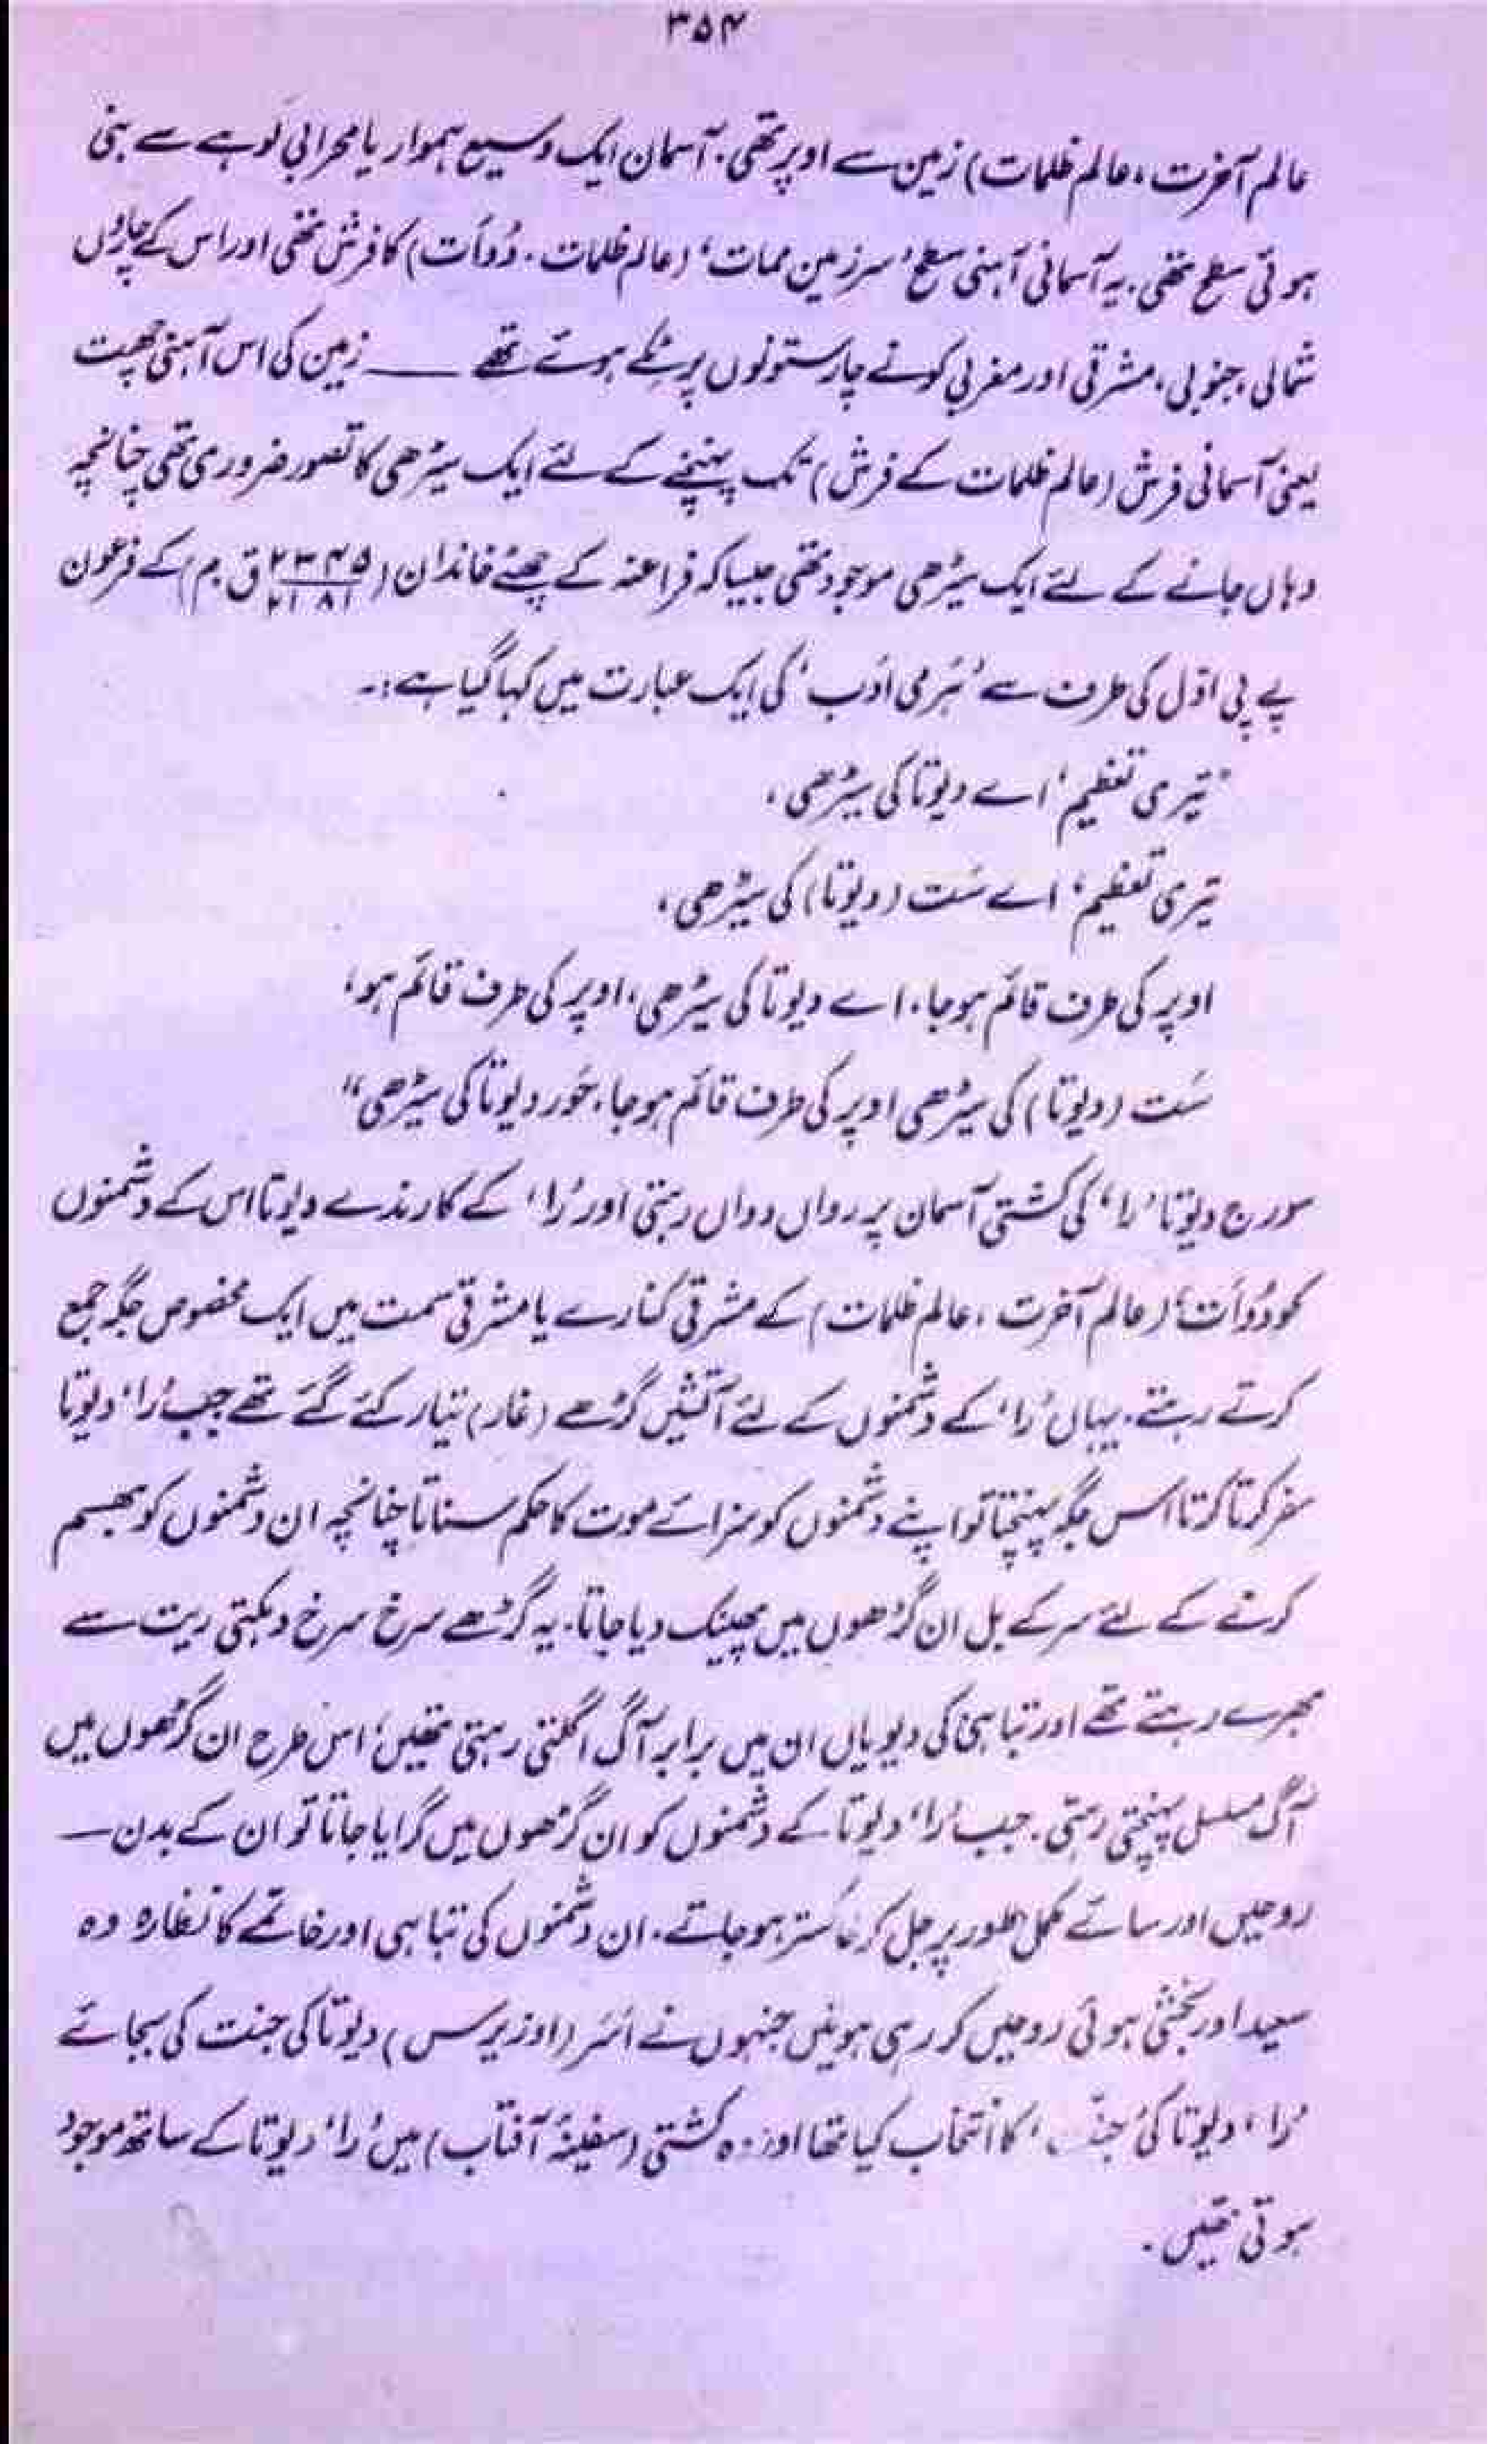 ۳۵۴
عالم آخرت، عالم ظلمات) زمین سے اوپر تھی. آسمان ایک وسیع ہموار یا محرابی لوہے سے بنی
ہوئی سطح تھی. یہ آسمانی آہنی سطح 'سرزمین ممات' (عالم ظلمات. دُوأت) کا فرش تھی اور اس کے چاروں
شمالی، جنوبی، مشرقی اور مغربی کونے چار ستونوں پر ٹِکے ہوئے تھے ــــــ زمین کی اس آہنی چھت
یعنی آسمانی فرش (عالم ظلمات کے فرش) تک پہنچنے کے لئے ایک سیڑھی کا تصور ضروری تھی چنانچہ
وہاں جانے کے لئے ایک سیڑھی موجود تھی جیسا کہ فراعنہ کے چھٹے خاندان (۲۳۴۵/۲۱۸۱ ق. م) کے فرعون
پے پی اوّل کی طرف سے 'ہَرمی ادَب' کی ایک عبارت میں کہا گیا ہے:۔
"تیری تعظیم' اے دیوتا کی سیڑھی،
تیری تعظیم' اے سَت (دیوتا) کی سیڑھی،
اوپر کی طرف قائم ہو جا، اے دیوتا کی سیڑھی، اوپر کی طرف قائم ہو،
سَت (دیوتا) کی سیڑھی اوپر کی طرف قائم ہو جا، حَور دیوتا کی سیڑھی"
سورج دیوتا 'را' کی کشتی آسمان پر رواں دواں رہتی اور 'را' کے کارندے دیوتا اس کے دشمنوں
کو دُوأت' (عالم آخرت، عالم ظلمات) کے مشرقی کنارے یا مشرقی سمت میں ایک مخصوص جگہ جمع
کرتے رہتے. یہاں 'را' کے دشمنوں کے لئے آتشیں گڑھے (غار) تیار کئے گئے تھے جب 'را' دیوتا
سفر کرتا کرتا اس جگہ پہنچتا تو اپنے دشمنوں کو سزائے موت کا حکم سناتا چنانچہ ان دشمنوں کو بھسم
کرنے کے لئے سر کے بل ان گڑھوں میں پھینک دیا جاتا. یہ گڑھے سرخ سرخ دہکتی ریت سے
بھرے رہتے تھے اور تباہی کی دیویاں ان میں برابر آگ اگلتی رہتی تھیں' اس طرح ان گڑھوں میں
آگ مسلسل پہنچتی رہتی. جب 'را' دیوتا کے دشمنوں کو ان گڑھوں میں گرایا جاتا تو ان کے بدن ــــ
روحیں اور سائے مکمل طور پر جل کر خاکستر ہو جاتے. ان دشمنوں کی تباہی اور خاتمے کا نظارہ وہ
سعید اور بخشی ہوئی روحیں کر رہی ہوتیں جنہوں نے اَسَر (اوزیرس) دیوتا کی جنت کی بجائے
'را' دیوتا کی 'جنت' کا انتخاب کیا تھا اور وہ کشتی (سفینۂ آفتاب) میں 'را' دیوتا کے ساتھ موجود
ہوتی تھیں.